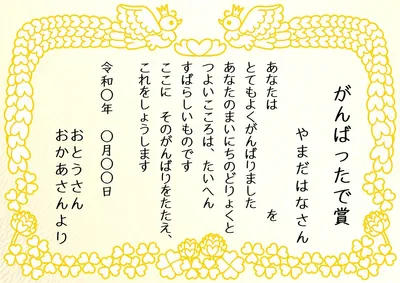 がんばったで賞
やまだはなさん
あなたは　　　　　　　を
とてもよくがんばりました
あなたのまいにちのどりょくと
つよいこころは、たいへん
すばらしいものです
ここに　そのがんばりをたたえ、
これをしょうします
令和〇年　〇月〇〇日
おとうさん
おかあさんより